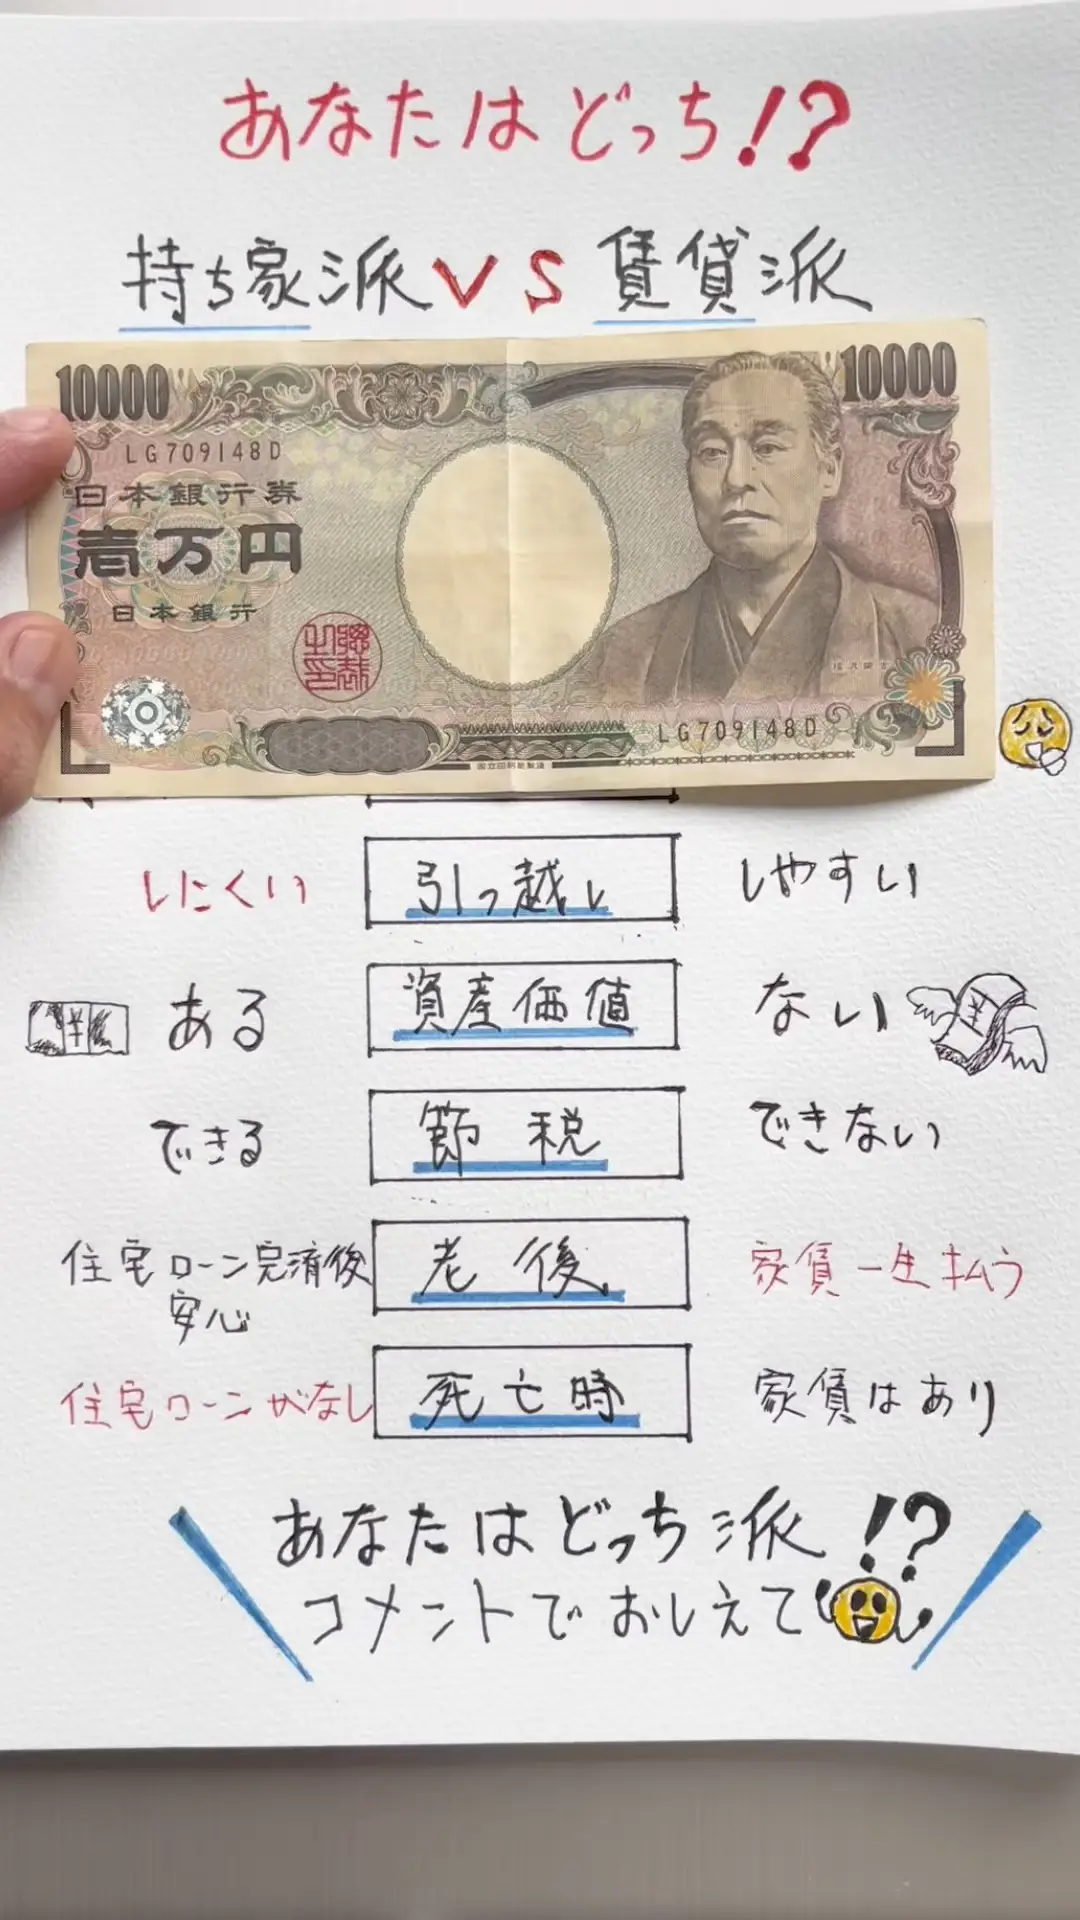 あなたはどっち!?
持ち家派VS賃貸派
10000 10000
LG709148D
日本銀行券
壱万円
日本銀行
総裁之印
福沢諭吉
LG709148D
国立印刷局製造
しにくい 引っ越し しやすい
ある 資産価値 ない
¥ ¥
できる 節税 できない
住宅ローン完済後 老後 家賃一生払う
安心
住宅ローンがなし 死亡時 家賃はあり
あなたはどっち派!?
コメントでおしえて